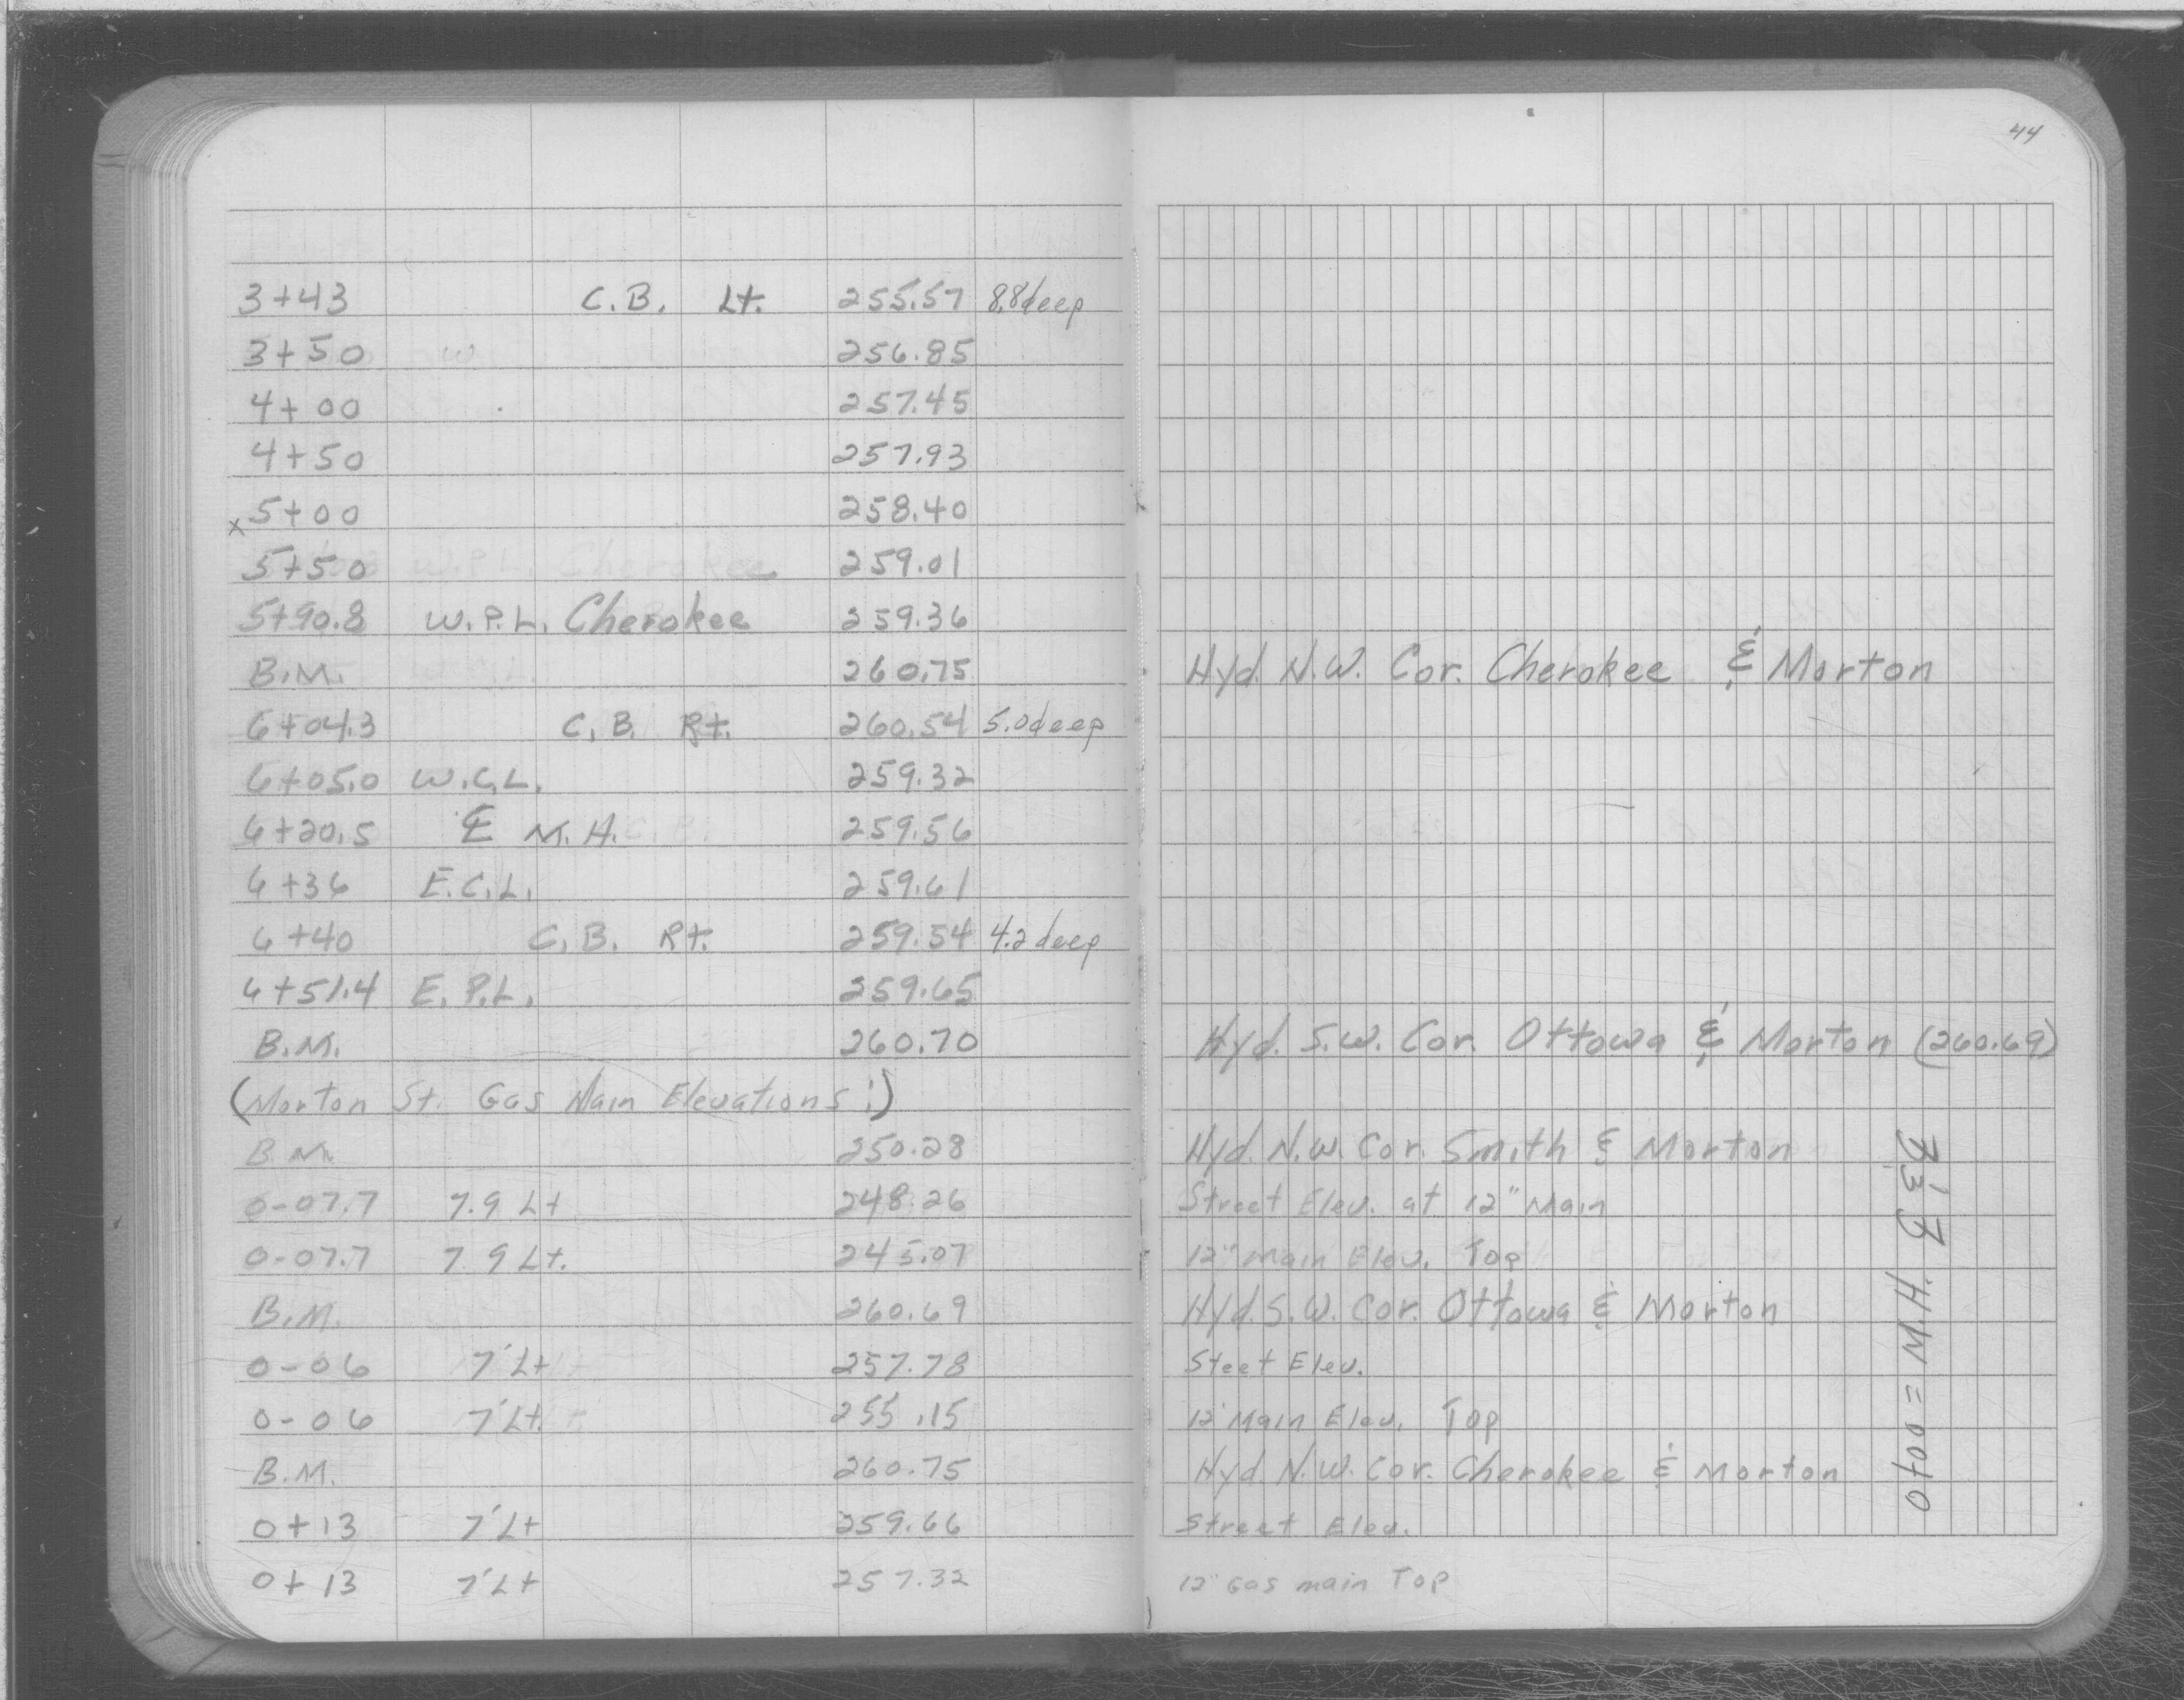 44
3+43 C.B. Lt. 255.57 8.8 deep
3+50 256.85
4+00 257.45
4+50 257.93
x 5+00 258.40
5+50 259.01
5+90.8 W.P.L. Cherokee 259.36
B.M. 260.75 Hyd. N.W. Cor. Cherokee & Morton
6+04.3 C.B. Rt. 260.54 5.0 deep
6+05.0 W.C.L. 259.32
6+20.5 ℄ M.H. 259.56
6+36 E.C.L. 259.61
6+40 C.B. Rt. 259.54 4.2 deep
6+51.4 E.P.L. 259.65
B.M. 260.70 Hyd. S.W. Cor. Ottowa & Morton (260.69)
(Morton St. Gas Main Elevations:)
B.M. 250.28 Hyd. N.W. Cor. Smith & Morton
0-07.7 7.9 Lt 248.26 Street Elev. at 12" Main
0-07.7 7.9 Lt. 245.07 12" Main Elev. Top
B.M. 260.69 Hyd. S.W. Cor. Ottowa & Morton
0-06 7' Lt 257.78 Steet Elev.
0-06 7' Lt. 255.15 12" Main Elev. Top
B.M. 260.75 Hyd. N.W. Cor. Cherokee & Morton
0+13 7' Lt 259.66 Street Elev.
0+13 7' Lt 257.32 12" Gas main Top
0+00 = M.H.